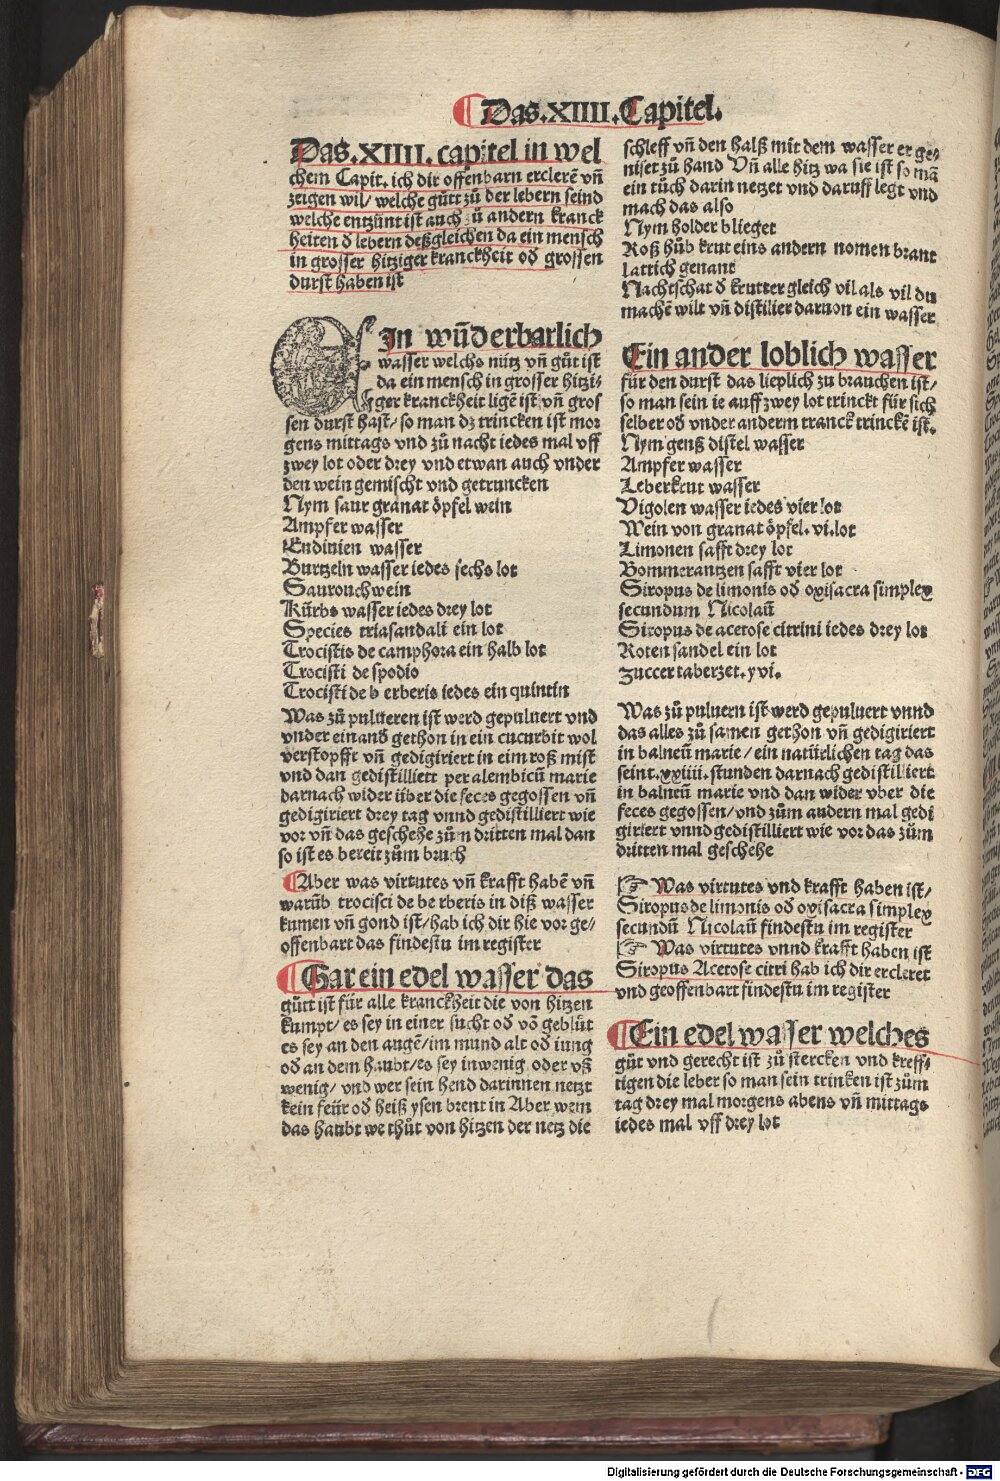 Das.XIIII.Capitel.
Das.XIIII. capitel in wel
chem Capit. ich dir offenbarn erclerē vñ
zeigen wil/ welche gůtt zů der lebern seind
welche entzünt ist auch zů andern kranck
heiten d̄ lebern deßgleichen da ein mensch
in grosser hitziger kranckheit od̄ grossen
durst haben ist
EIn wūderbarlich
wasser welchs nütz vñ gůt ist
da ein mensch in grosser hitzi-
ger kranckheit ligē ist vñ gros
sen durst hast/ so man dz trincken ist mor
gens mittags vnd zů nacht iedes mal vff
zwey lot oder drey vnd etwan auch vnder
den wein gemischt vnd getruncken
Nym saur granat öpfel wein
Ampfer wasser
Endiuien wasser
Burtzeln wasser iedes sechs lot
Saurouchwein
Kürbs wasser iedes drey lot
Species triasandali ein lot
Trocistis de camphora ein halb lot
Trocisti de spodio
Trocisti de berberis iedes ein quintin
Was zů pulueren ist werd gepuluert vnd
vnder einand̄ gethon in ein cucurbit wol
verstopfft vñ gedigiriert in eim roß mist
vnd dan gedistilliett per alembicū marie
darnach wider über die feces gegossen vñ
gedigiriert drey tag vnnd gedistilliert wie
vor vñ das geschehe zům dritten mal dan
so ist es bereit zům bruch
Aber was virtutes vñ krafft habē vñ
warūb trocisci de berberis in diß wasser
kumen vñ gond ist/ hab ich dir hie vor ge/
offenbart das findestu im register
Gar ein edel wasser das
gůtt ist für alle kranckheit die von hitzen
kumpt/ es sey in einer sucht od̄ vō geblůt
es sey an den augē/ im mund alt od̄ iung
od̄ an dem haubt/ es sey inwenig oder vß
wenig/ vnd wer sein hend darinnen netzt
kein feür od̄ heiß ysen brent in Aber wem
das haubt we thůt von hitzen der netz die
schleff vñ den halß mit dem wasser er ge-
niset zů hand Vñ alle hitz wa sie ist so mā
ein tůch darin netzet vnd daruff legt vnd
mach das also
Nym holder blieget
Roß hůb krut eins andern nomen brant
lattich genant
Nachtschat d̄ krutter gleich vil als vil du
machē wilt vñ distilier daruon ein wasser
Ein ander loblich wasser
für den durst das lieplich zu brauchen ist/
so man sein ie auff zwey lot trinckt für sich
selber od̄ vnder anderm tranck trinckē ist.
Nym genß distel wasser
Ampfer wasser
Leberkrut wasser
Vigolen wasser iedes vier lot
Wein von granat öpfel. vi. lot
Limonen safft drey lot
Bommerantzen safft vier lot
Siropus de limonis od̄ oxisacra simplex
secundum Nicolaū
Siropus de acetose citrini iedes drey lot
Roten sandel ein lot
Zuccer taberzet. xvi.
Was zů puluern ist werd gepuluert vnnd
das alles zů samen gethon vñ gedigiriert
in balneū marie/ ein natürlichen tag das
seint. xxiiii. stunden darnach gedistilliert
in balneū marie vnd dan wider vber die
feces gegossen/ vnd zům andern mal gedi
giriert vnnd gedistilliert wie vor das zům
dritten mal geschehe
☞ Was virtutes vnd krafft haben ist/
Siropus de limonis od̄ oxisacra simplex
secundū Nicolaū findestu im register
☞ Was virtutes vnnd krafft haben ist
Siropus Acetose citri hab ich dir ercleret
vnd geoffenbart findestu im register
Ein edel wasser welches
gůt vnd gerecht ist zů stercken vnd kreff-
tigen die leber so man sein trinken ist zům
tag drey mal morgens abens vñ mittags
iedes mal vff drey lot
Digitalisierung gefördert durch die Deutsche Forschungsgemeinschaft - DFG